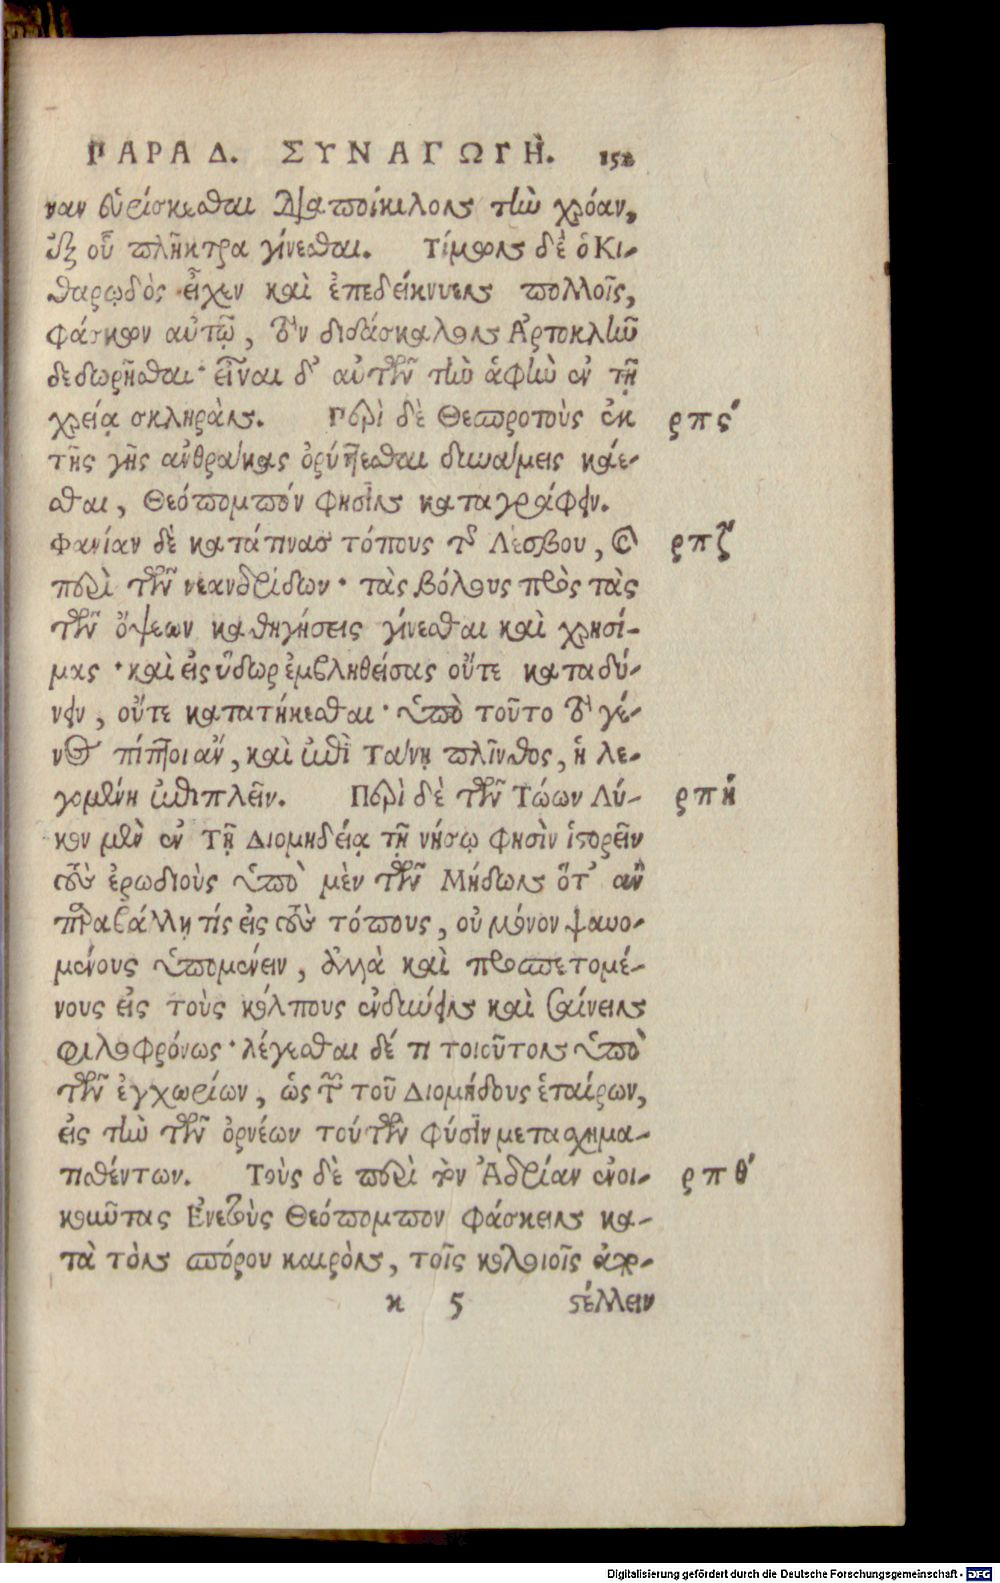 ΠΑΡΑΔ. ΣΥΝΑΓΩΓῊ. 152
ναν εὑρίσκεσθαι διαποίκιλον τὴν χρόαν,
ἐξ οὗ πλῆκτρα γίνεσθαι. Τίμων δὲ ὁ Κι-
θαρῳδὸς εἶχεν καὶ ἐπεδείκνυεν πολλοῖς,
φάσκων αὐτῷ, τὸν διδάσκαλον Ἀρτοκλῆν
δεδωρῆσθαι· εἶναι δ' αὐτῶν τὴν ἁφὴν ἐν τῇ
χρείᾳ σκληράν. Περὶ δὲ Θεσπροτοὺς ἐκ ρπϛ΄
τῆς γῆς ἄνθρακας ὀρύττεσθαι δυναμεις κάε-
σθαι, Θεόπομπόν φησὶν καταγράφειν.
Φανίαν δὲ κατάτινας τόπους τῆς Λέσβου, καὶ ρπζ΄
περὶ τῶν νεανδρίδων· τὰς βόλους πρὸς τὰς
τῶν ὄψεων καθηγήσεις γίνεσθαι καὶ χρησί-
μας· καὶ εἰς ὕδωρ ἐμβληθείσας οὔτε καταδύ-
νειν, οὔτε κατατήκεσθαι· ὑπὸ τοῦτο τὸ γέ-
νος πίπτοι ἂν, καὶ ἐπὶ Τάνῃ πλῖνθος, ἡ λε-
γομένη ἐπιπλεῖν. Περὶ δὲ τῶν Τώων Λύ- ρπή
κον μὲν ἐν τῇ Διομηδείᾳ τῇ νήσῳ φησὶν ἱστορεῖν
τοὺς ἐρωδιοὺς ὑπὸ μὲν τῶν Μήδων ὅτ' ἂν
παραβάλλῃ τίς εἰς τοὺς τόπους, οὐ μόνον ψαυο-
μένους ὑπομένειν, ἀλλὰ καὶ προσπετομέ-
νους εἰς τοὺς κόλπους ἐνδύνειν καὶ σαίνειν
φιλοφρόνως· λέγεσθαι δέ τι τοιοῦτον ὑπὸ
τῶν ἐγχωρίων, ὡς τῶν τοῦ Διομήδους ἑταίρων,
εἰς τὴν τῶν ὀρνέων τούτων φύσιν μετασχημα-
τισθέντων. Τοὺς δὲ περὶ τὸν Ἀδρίαν ἐνοι- ρπθ΄
κοῦντας Ἐνετοὺς Θεόπομπον φάσκειν κα-
τὰ τὸν σπόρου καιρὸν, τοῖς κολοιοῖς ἀπο-
κ 5 στέλλειν
Digitalisierung gefördert durch die Deutsche Forschungsgemeinschaft - DFG